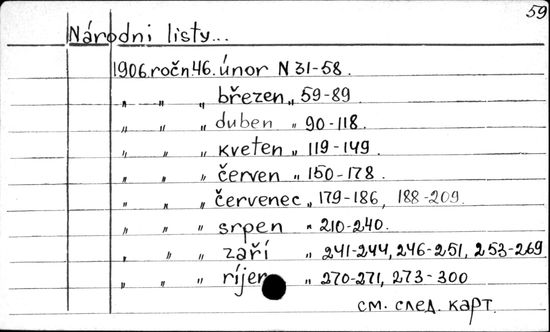 59
Národni listy...
1906. ročn. 46. únor N 31-58.
„ „ „ březen „ 59-89
„ „ „ duben „ 90-118.
„ „ „ kveten „ 119-149.
„ „ „ červen „ 150-178.
„ „ „ červenec „ 179-186, 188-209.
„ „ „ srpen „ 210-240.
„ „ „ zaří „ 241-244, 246-251, 253-269
„ „ „ ríjen „ 270-271, 273-300
см. след. карт.